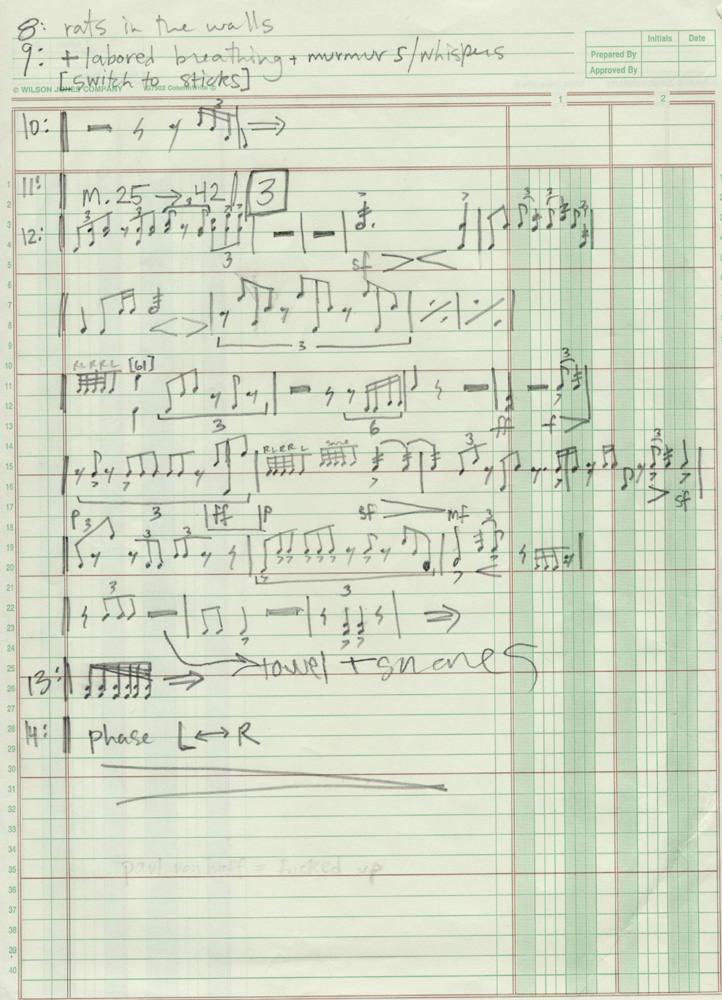 8: rats in the walls
9: + labored breathing + murmurs/whispers
[switch to sticks]
Initials Date
Prepared By
Approved By
© WILSON JONES COMPANY G7502 ColumnWrite ®
1 2
10: 3
11: M. 25 → 42 3
12: 3 3 3 3 3 3
3
sf
3
RLRRL [61] 3
3 6 ff f
RLRRL same 3 3
p 3 ff p sf mf sf
3 3 3 3
3 3
towel + snares
13:
14: phase L ↔ R
1
2
3
4
5
6
7
8
9
10
11
12
13
14
15
16
17
18
19
20
21
22
23
24
25
26
27
28
29
30
31
32
33
34
35
36
37
38
39
40